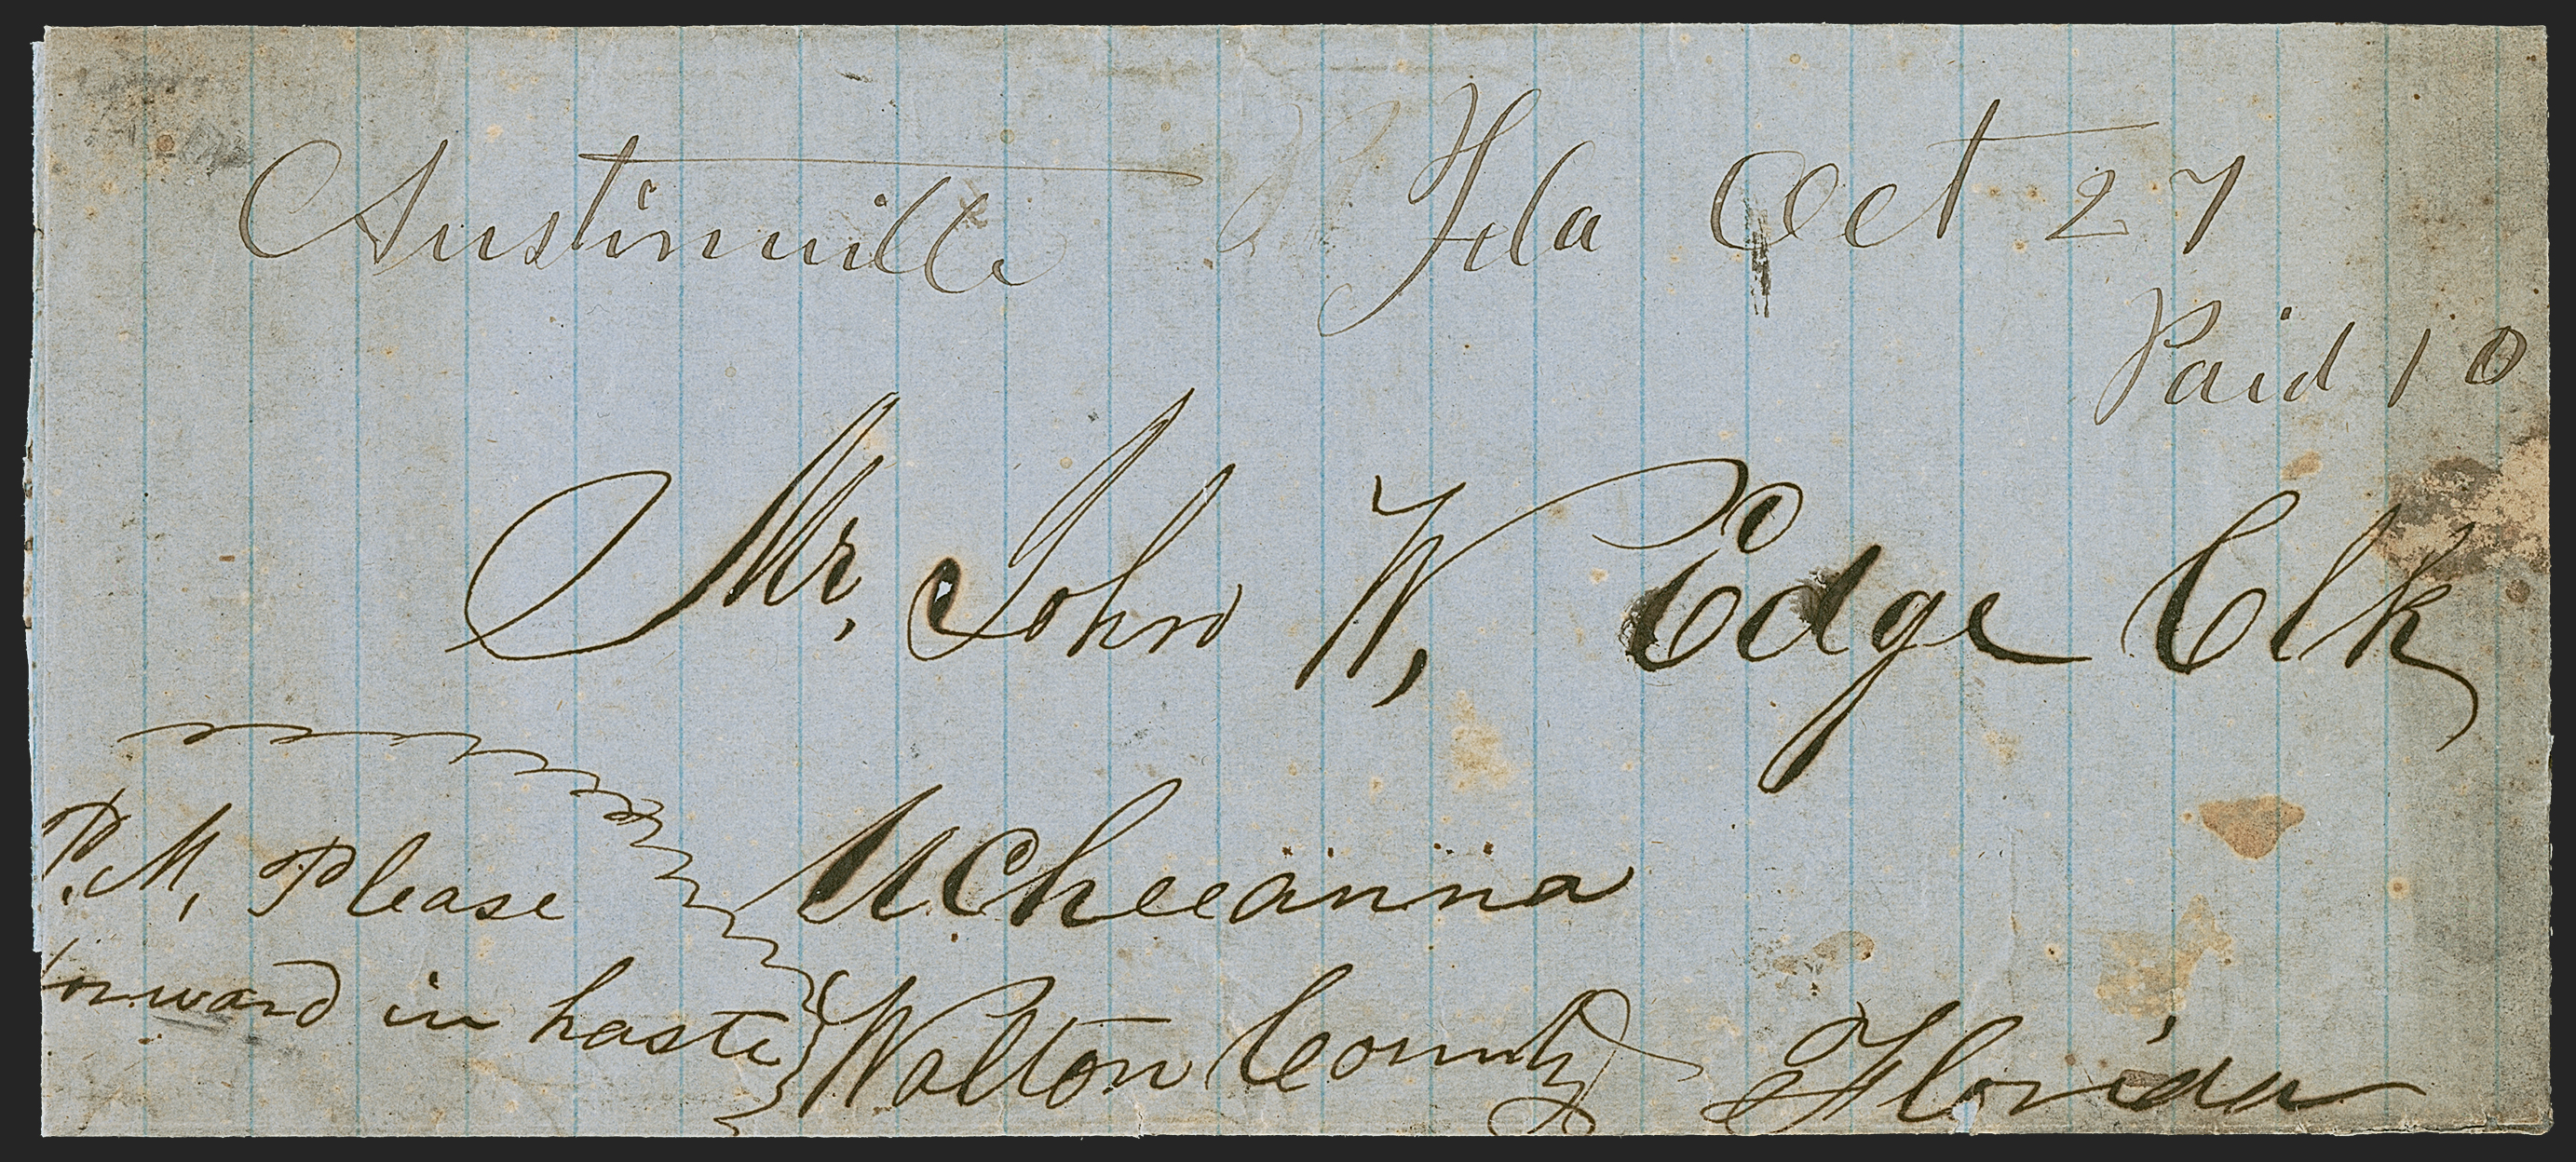 Austinville Fla Oct 27
Paid 10
Mr. John W, Edge Clk
Ucheeanna
Walton County Florida
P.M, Please
forward in haste